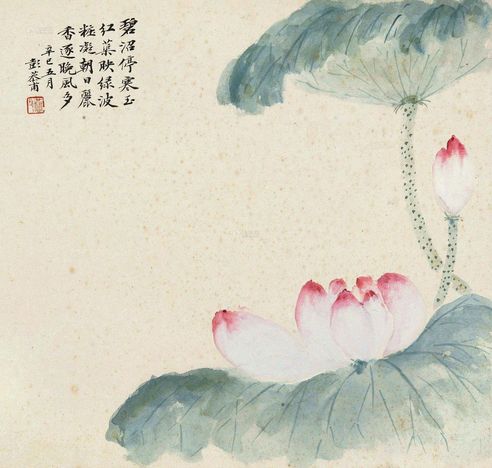 碧沼停寒玉
红蕖映绿波
妆凝朝日丽
香逐晚风多
辛巳五月
彭恭甫